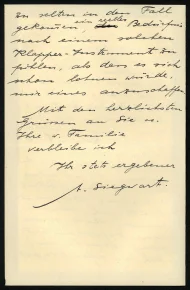 zu selten in den Fall
gekommen, ein reelles Bedürfnis
nach einem solchen
Klopfer-Instrument zu
fühlen, als dass es sich
schon lohnen würde,
mir eines anzuschaffen.
Mit den herzlichsten
Grüssen an Sie u.
Ihre v. Familie
verbleibe ich
Ihr stets ergebener
A. Siegwart.